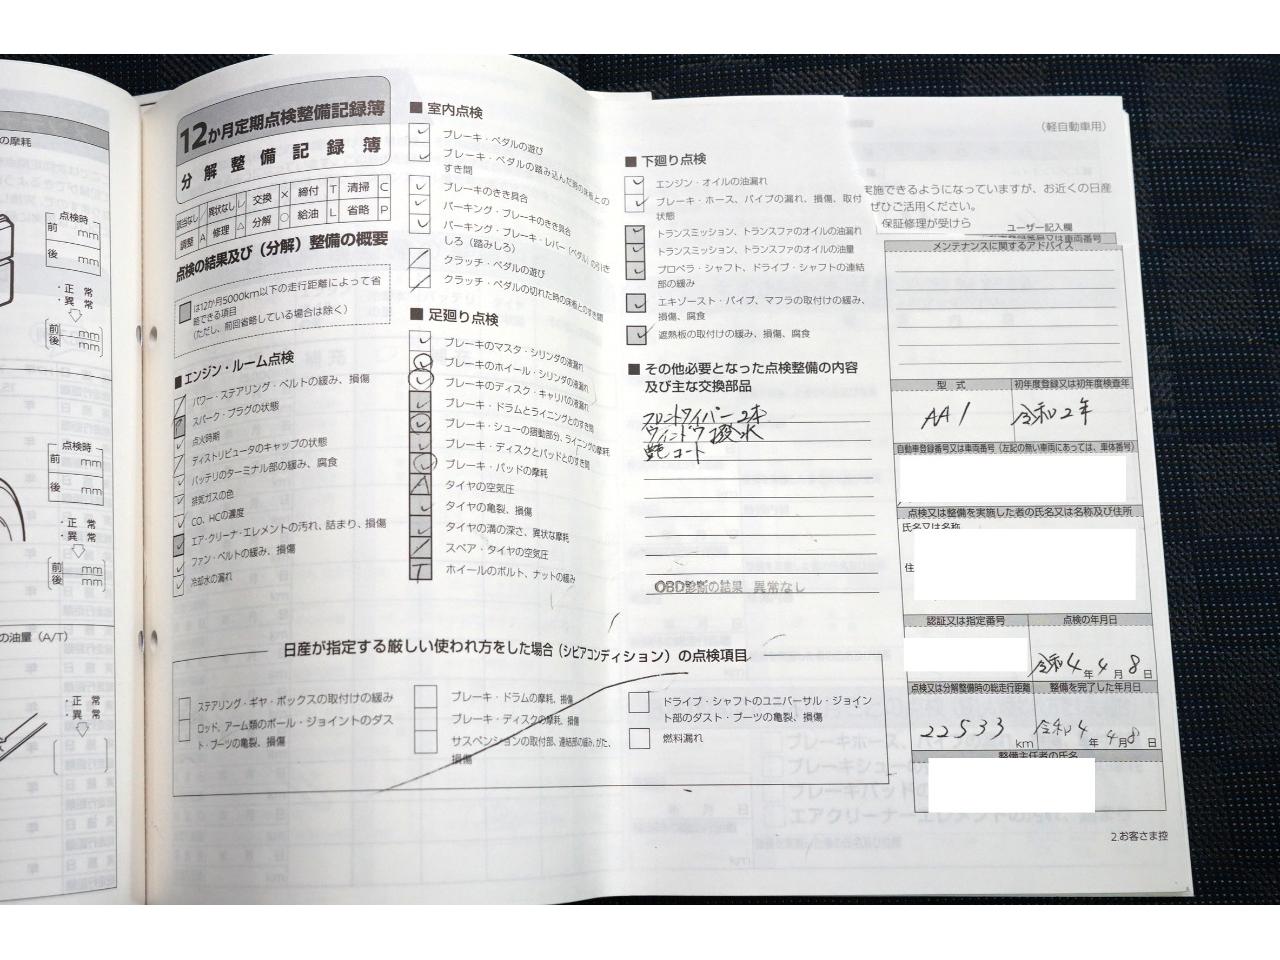 の摩耗
点検時
前 mm
後 mm
・正 常
・異 常
前 mm
後 mm
点検時
前 mm
後 mm
・正 常
・異 常
前 mm
後 mm
の油量（A/T）
・正 常
・異 常
12か月定期点検整備記録簿
分解整備記録簿
該当なし / 異状なし レ 交換 × 締付 T 清掃 C
調整 A 修理 △ 分解 ○ 給油 L 省略 P
点検の結果及び（分解）整備の概要
は12か月5000km以下の走行距離によって省
略できる項目
（ただし、前回省略している場合は除く）
■ エンジン・ルーム点検
パワー・ステアリング・ベルトの緩み、損傷
スパーク・プラグの状態
点火時期
ディストリビュータのキャップの状態
バッテリのターミナル部の緩み、腐食
排気ガスの色
CO、HCの濃度
エア・クリーナ・エレメントの汚れ、詰まり、損傷
ファン・ベルトの緩み、損傷
冷却水の漏れ
■ 室内点検
ブレーキ・ペダルの遊び
ブレーキ・ペダルの踏み込んだ時の床板との
すき間
ブレーキのきき具合
パーキング・ブレーキのきき具合
パーキング・ブレーキ・レバー（ペダル）の引き
しろ（踏みしろ）
クラッチ・ペダルの遊び
クラッチ・ペダルの切れた時の床板とのすき間
■ 足廻り点検
ブレーキのマスタ・シリンダの液漏れ
ブレーキのホイール・シリンダの液漏れ
ブレーキのディスク・キャリパの液漏れ
ブレーキ・ドラムとライニングとのすき間
ブレーキ・シューの摺動部分、ライニングの摩耗
ブレーキ・ディスクとパッドとのすき間
ブレーキ・パッドの摩耗
A タイヤの空気圧
タイヤの亀裂、損傷
タイヤの溝の深さ、異状な摩耗
スペア・タイヤの空気圧
T ホイールのボルト、ナットの緩み
■ 下廻り点検
エンジン・オイルの油漏れ
ブレーキ・ホース、パイプの漏れ、損傷、取付
状態
トランスミッション、トランスファのオイルの油漏れ
トランスミッション、トランスファのオイルの油量
プロペラ・シャフト、ドライブ・シャフトの連結
部の緩み
エキゾースト・パイプ、マフラの取付けの緩み、
損傷、腐食
遮熱板の取付けの緩み、損傷、腐食
■ その他必要となった点検整備の内容
及び主な交換部品
フロントワイパー2本
ウィンドウ撥水
艶コート
OBD診断の結果 異常なし
日産が指定する厳しい使われ方をした場合（シビアコンディション）の点検項目
ステアリング・ギヤ・ボックスの取付けの緩み
ロッド、アーム類のボール・ジョイントのダス
ト・ブーツの亀裂、損傷
ブレーキ・ドラムの摩耗、損傷
ブレーキ・ディスクの摩耗、損傷
サスペンションの取付部、連結部の緩み、がた、
損傷
ドライブ・シャフトのユニバーサル・ジョイン
ト部のダスト・ブーツの亀裂、損傷
燃料漏れ
（軽自動車用）
実施できるようになっていますが、お近くの日産
ぜひご活用ください。
保証修理が受けら
ユーザー記入欄
メンテナンスに関するアドバイス
型 式 初年度登録又は初年度検査年
AA1 令和2年
自動車登録番号又は車両番号（左記の無い車両にあっては、車体番号）
点検又は整備を実施した者の氏名又は名称及び住所
氏名又は名称
住
認証又は指定番号 点検の年月日
令和4年4月8日
点検又は分解整備時の総走行距離 整備を完了した年月日
22533 km 令和4年4月8日
整備主任者の氏名
2.お客さま控